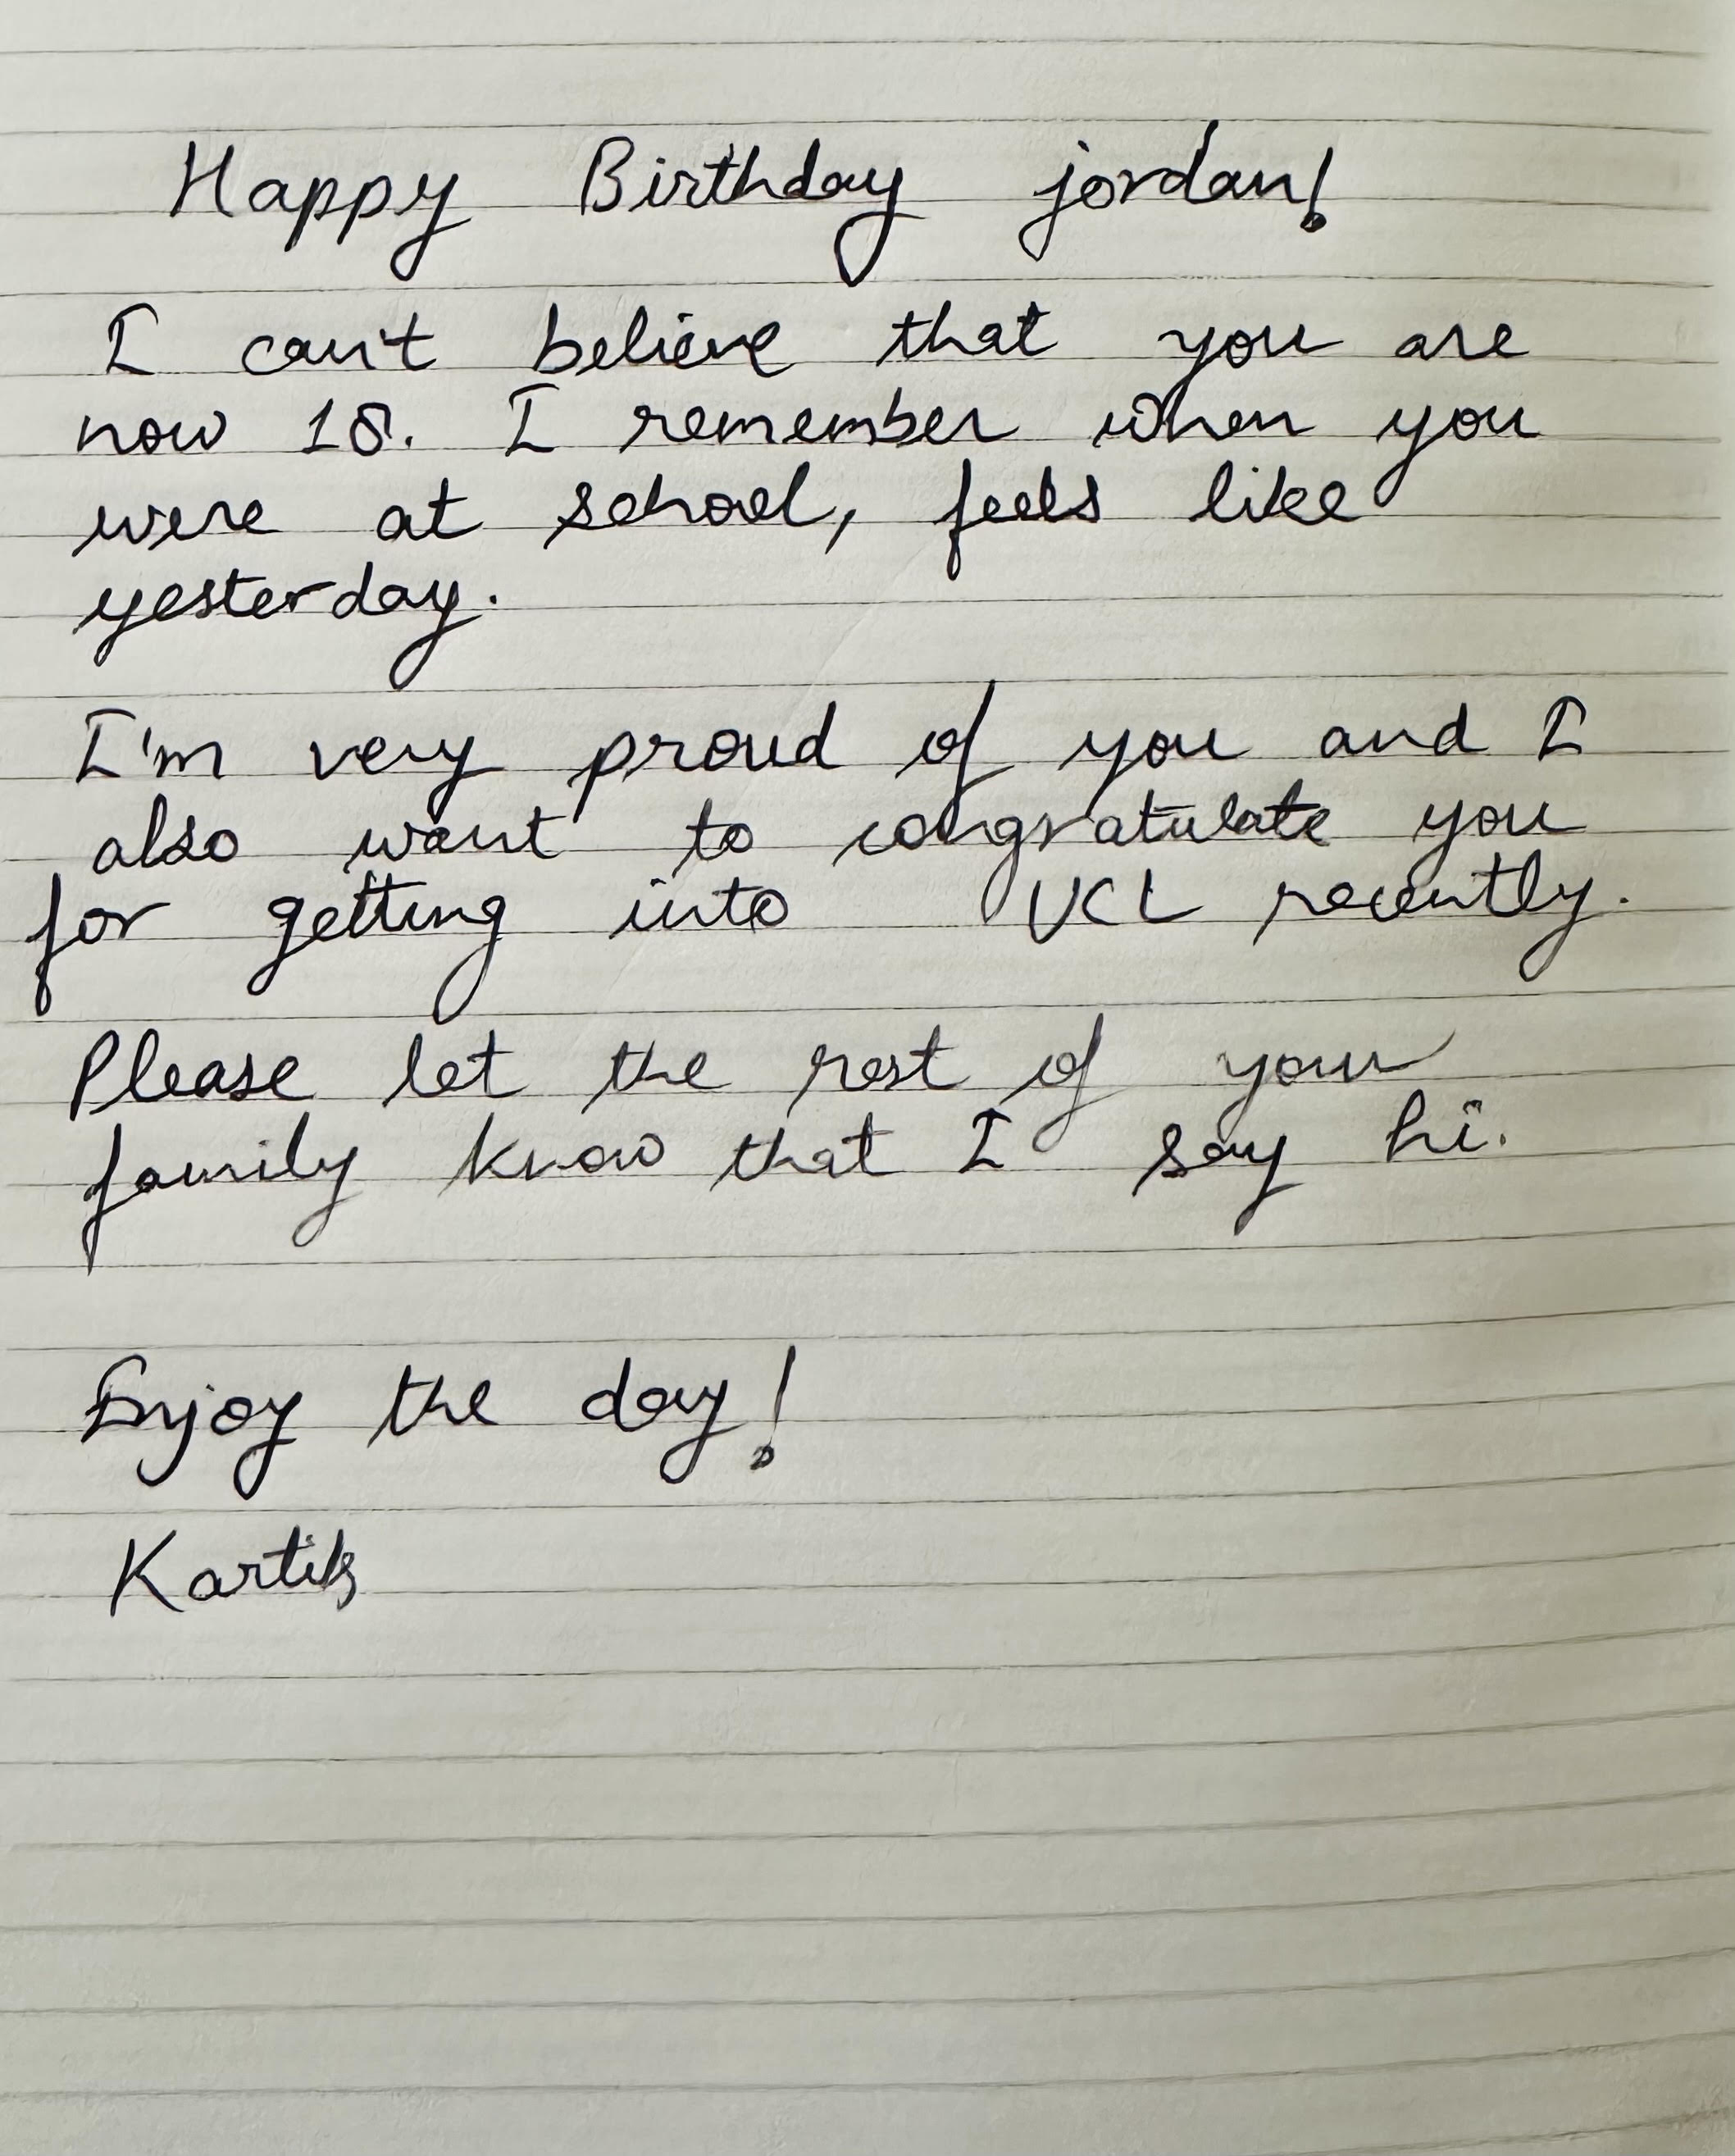 Happy Birthday jordan!
I can't believe that you are
now 18. I remember when you
were at school, feels like
yesterday.
I'm very proud of you and I
also want to congratulate you
for getting into UCL recently.
Please let the rest of your
family know that I say hi.
Enjoy the day!
Kartik